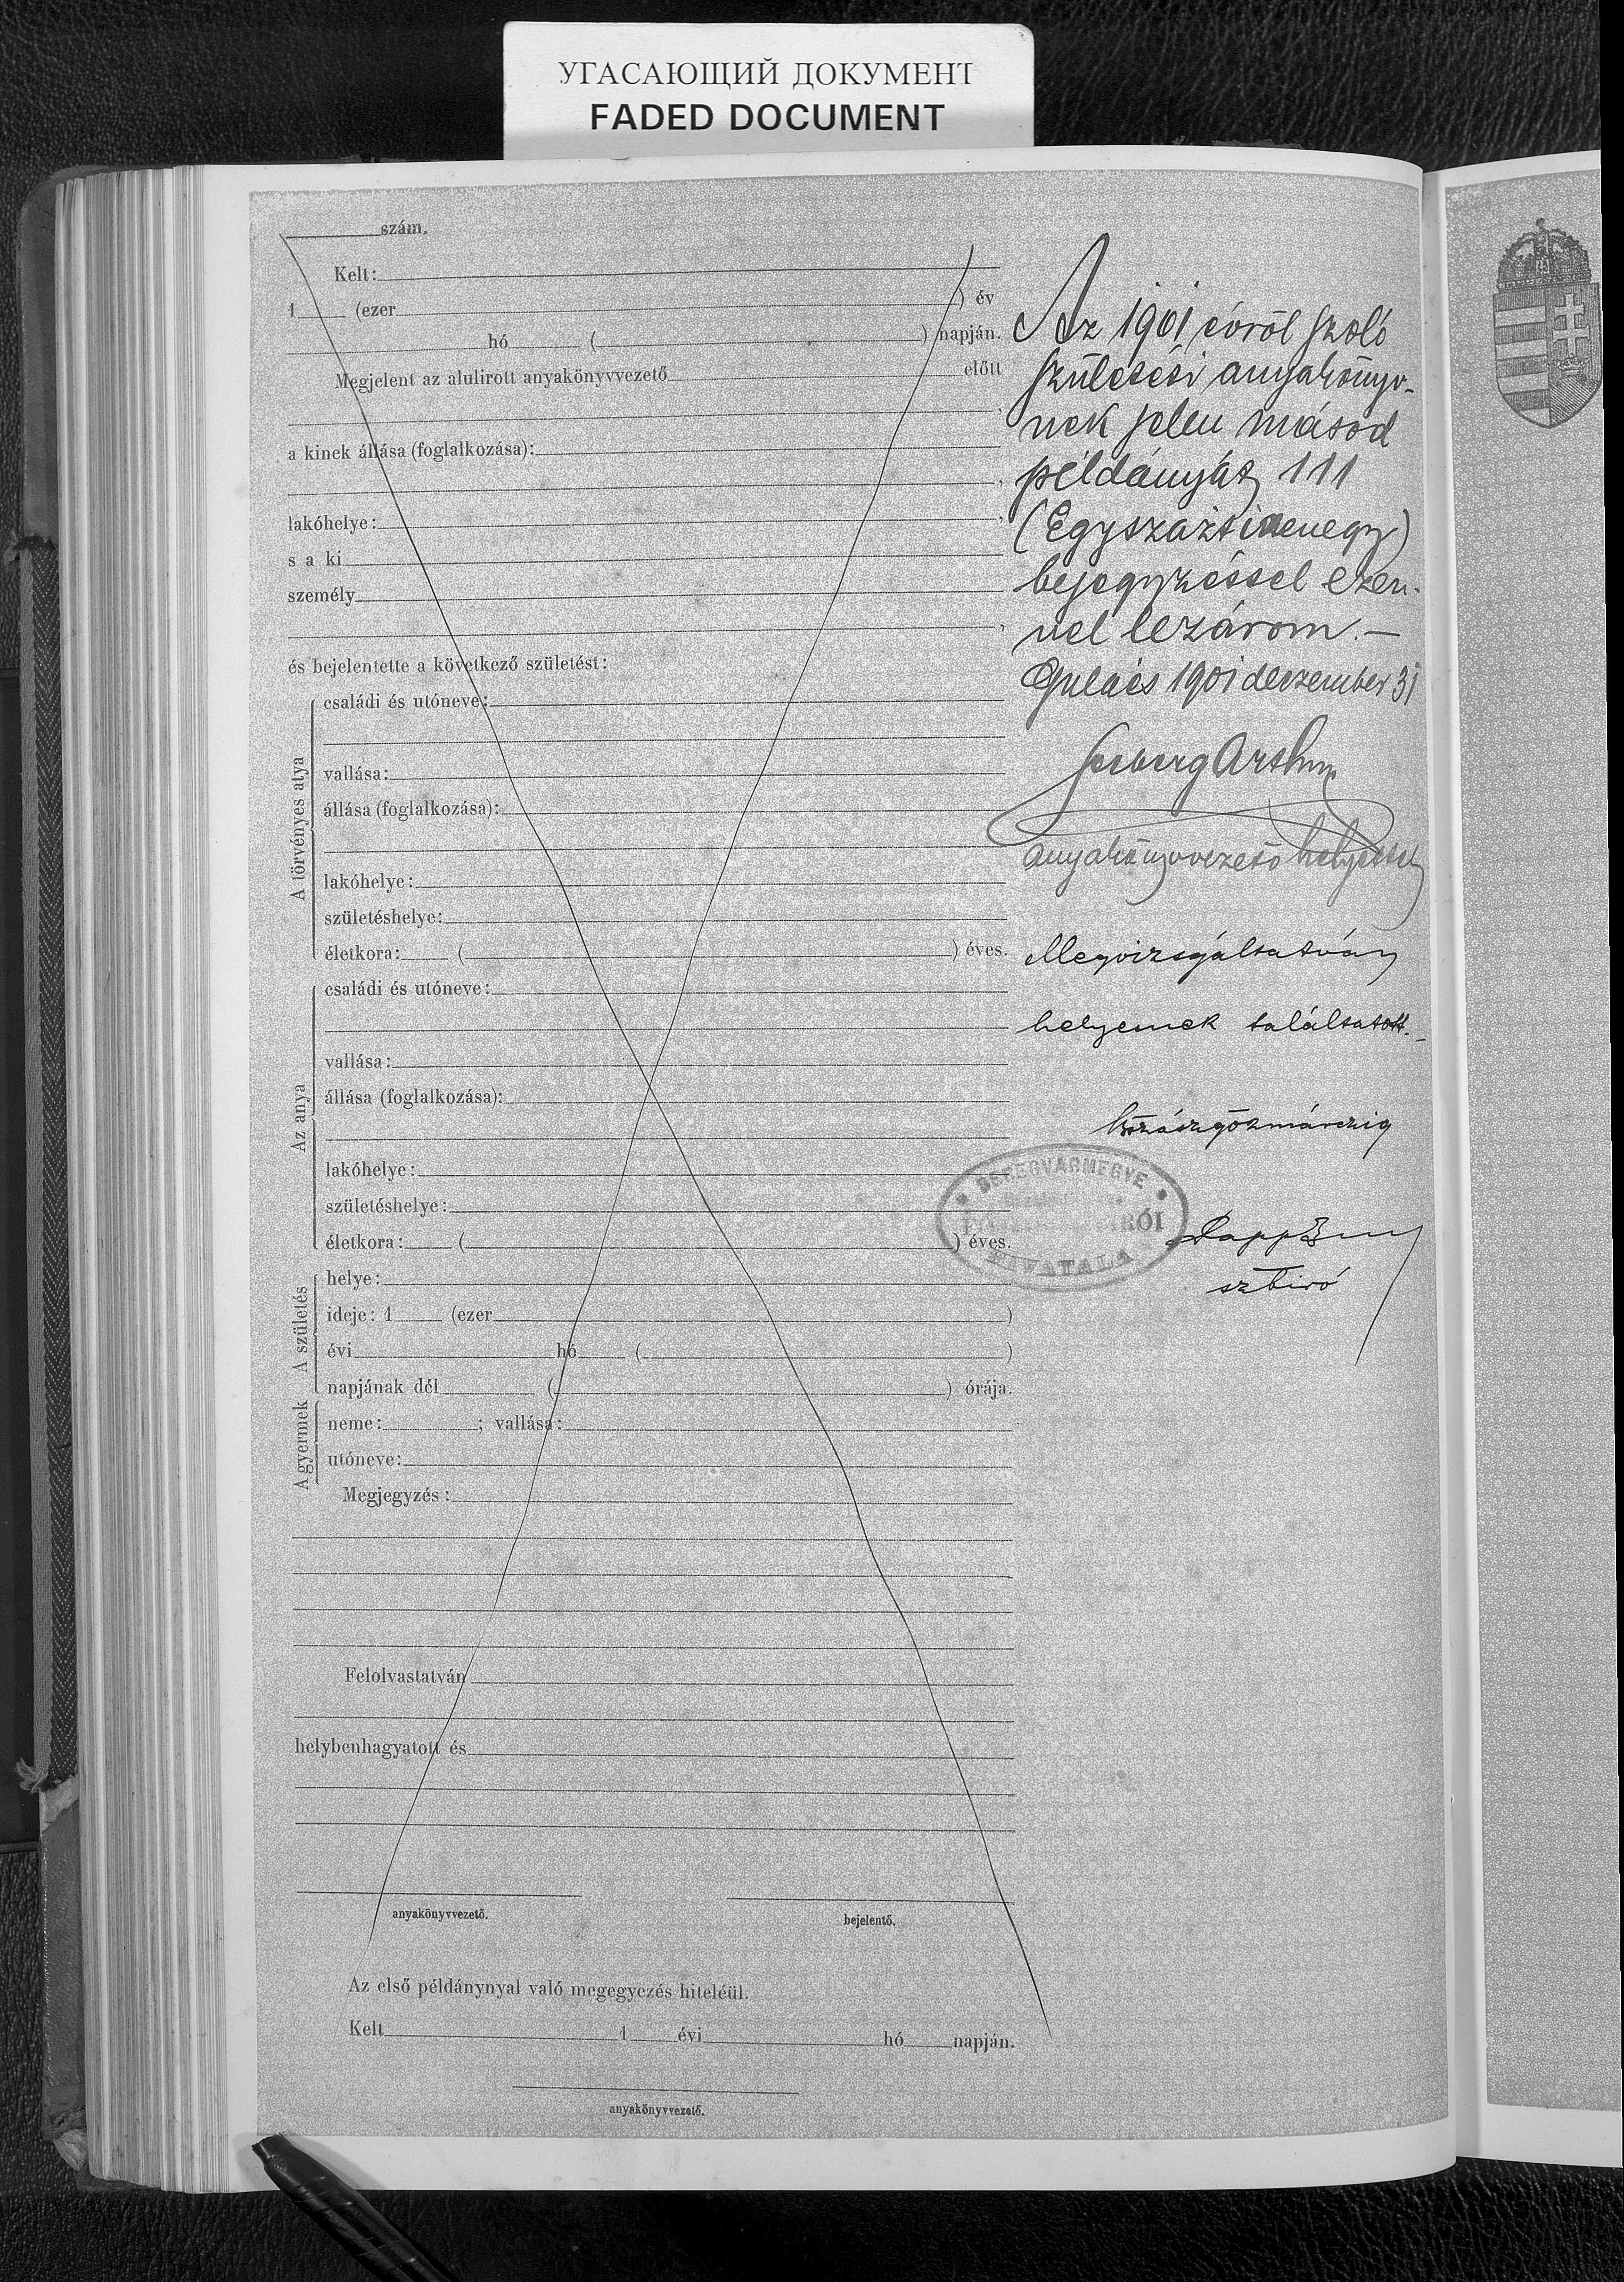 УГАСАЮЩИЙ ДОКУМЕНТ
FADED DOCUMENT
szám.
Kelt:
1 (ezer ) év
hó ( ) napján.
Megjelent az alulirott anyakönyvvezető előtt
,
a kinek állása (foglalkozása):
,
lakóhelye: ,
s a ki
személy
,
és bejelentette a következő születést:
A törvényes atya
családi és utóneve:
vallása:
állása (foglalkozása):
lakóhelye:
születéshelye:
életkora: ( ) éves.
Az anya
családi és utóneve:
vallása:
állása (foglalkozása):
lakóhelye:
születéshelye:
életkora: ( ) éves.
A születés
helye:
ideje: 1 (ezer )
évi hó ( )
napjának dél ( ) órája.
A gyermek
neme: ; vallása:
utóneve:
Megjegyzés:
Felolvastatván
helybenhagyatott és
anyakönyvvezető. bejelentő.
Az első példánynyal való megegyezés hiteléül.
Kelt 1 évi hó napján.
anyakönyvvezető.
Az 1901 évről szoló
születési anyakönyv-
nek jelen másod
példányát 111
(Egyszáztizenegy)
bejegyzéssel ezen-
nel lezárom. —
Gulács 1901 deczember 31
Arthur
anyakönyvvezető helyettes
Megvizsgáltatván
helyesnek találtatott.
BEREGVÁRMEGYE
HIVATALA
Papp
szbiró